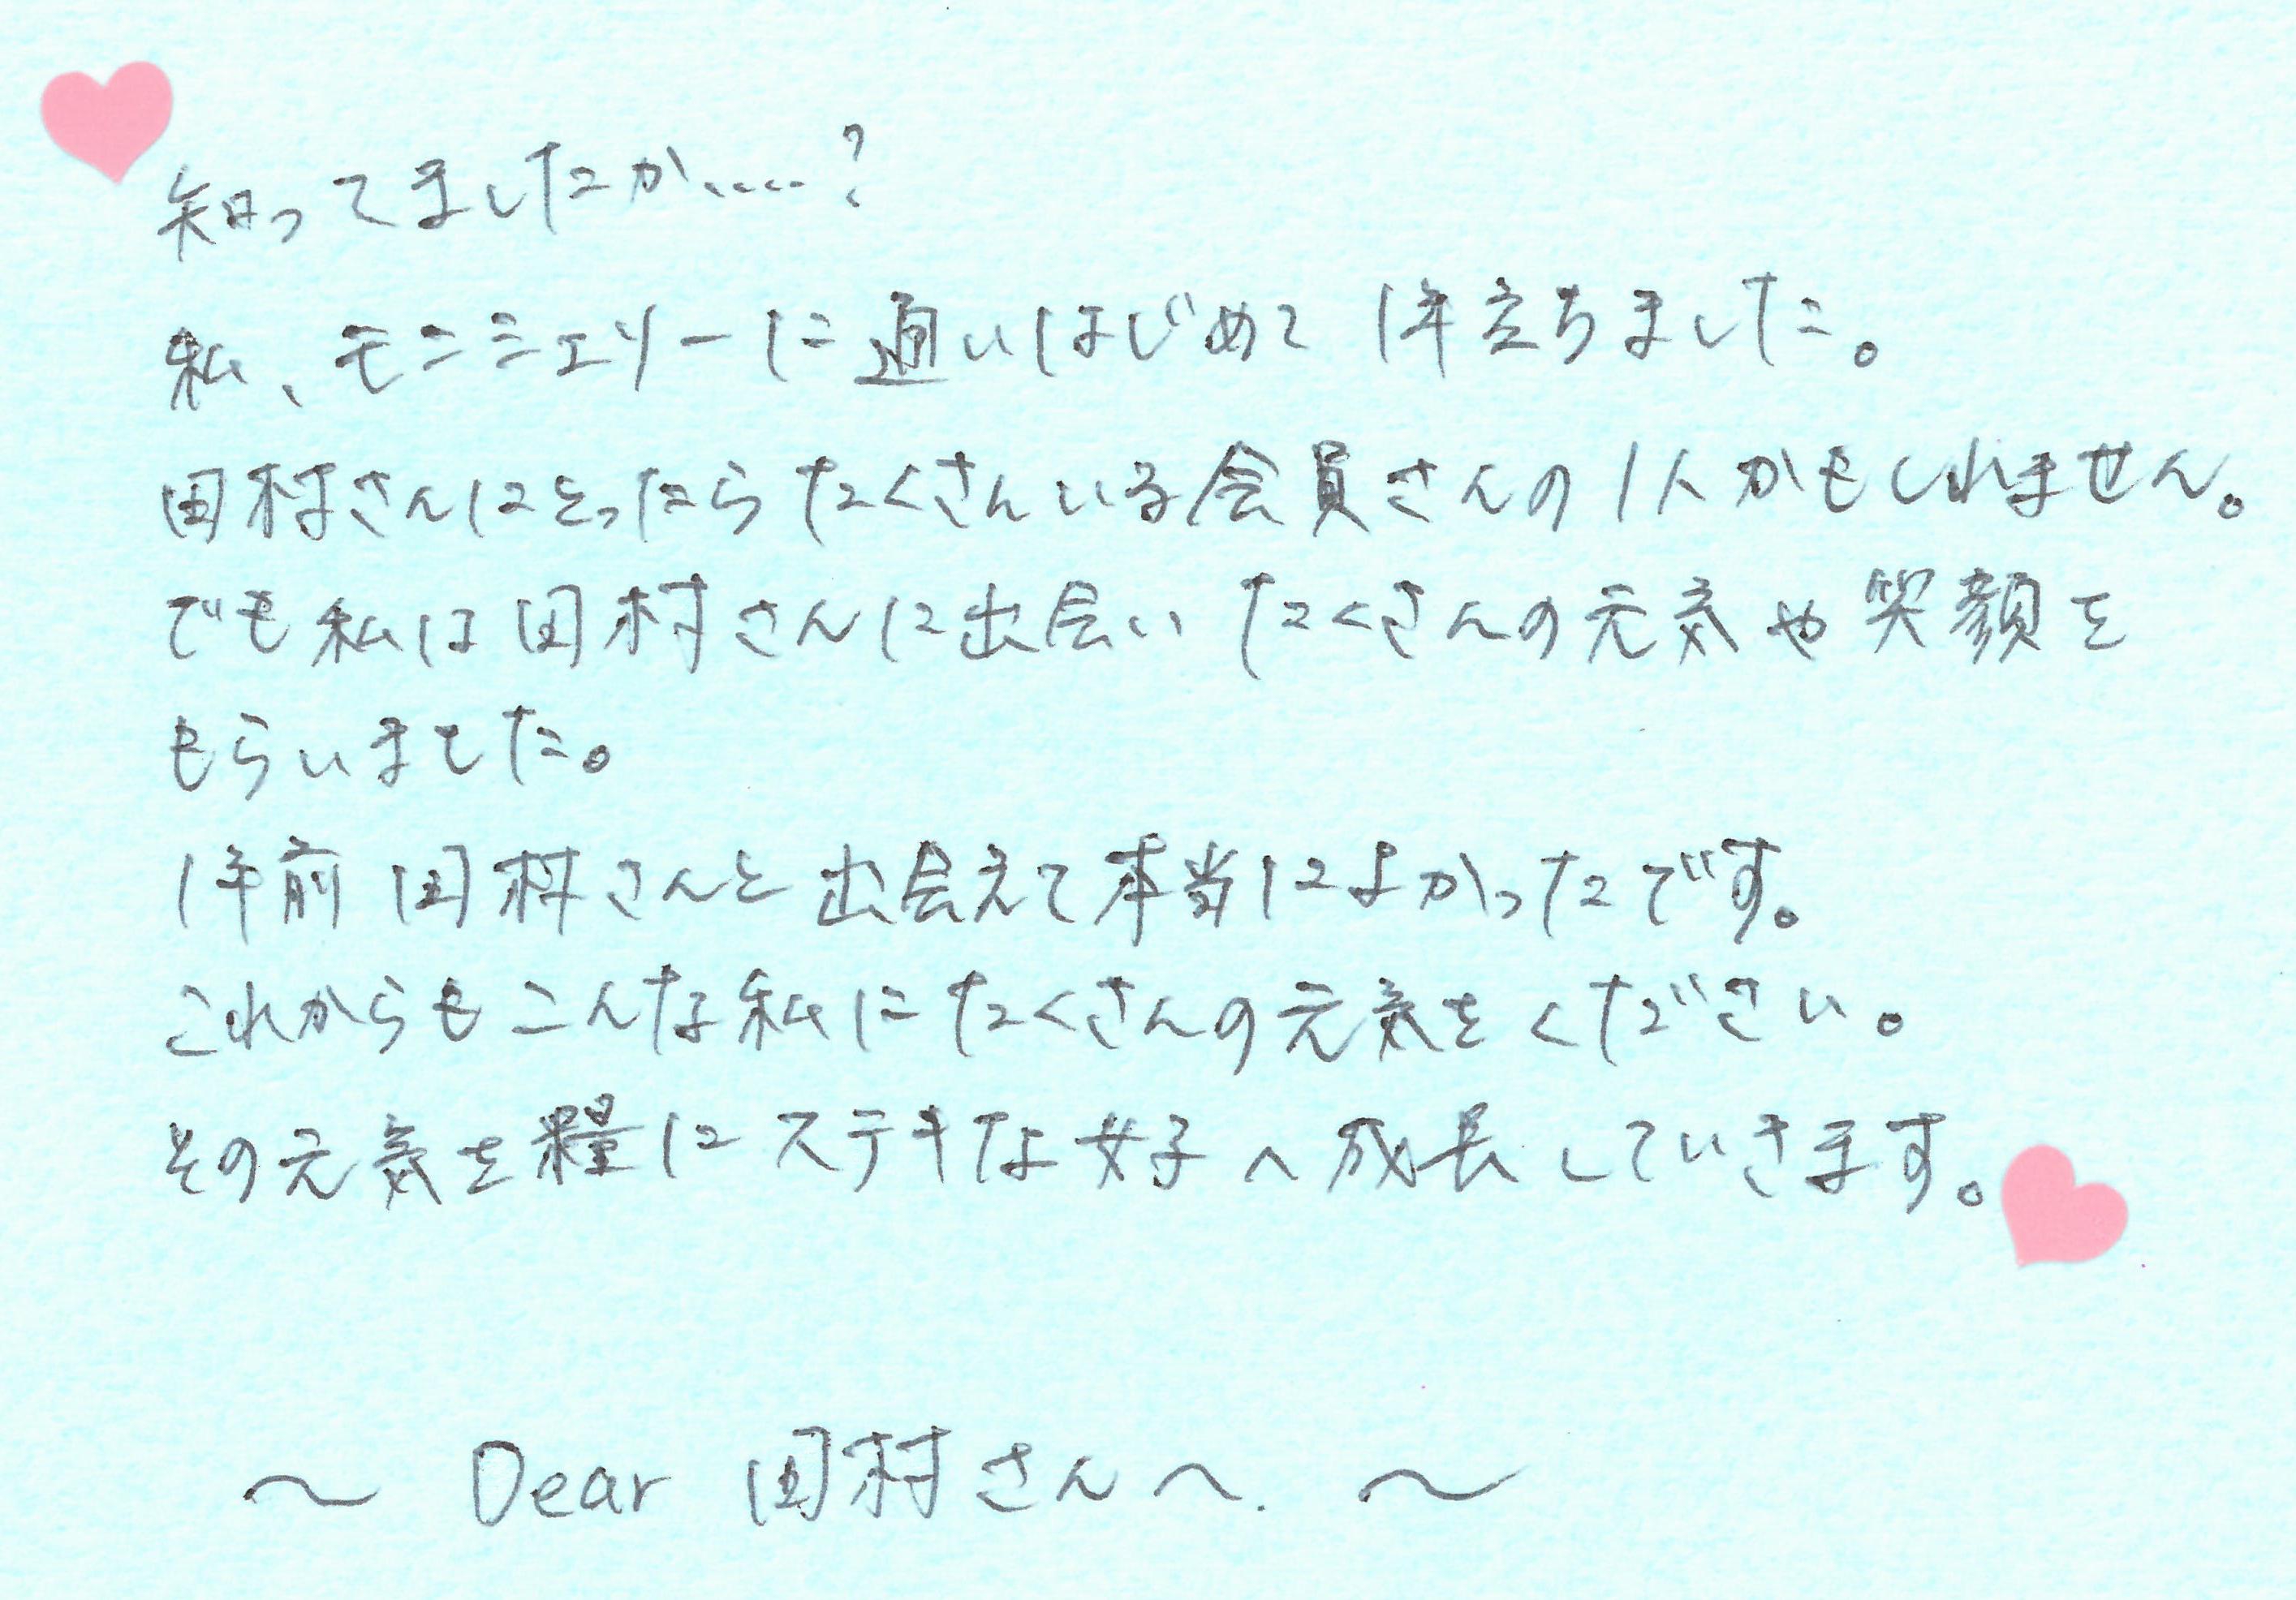 知ってましたか.....?
私、モニシェリーに通いはじめて 1年立ちました。
田村さんにとったらたくさんいる会員さんの1人かもしれません。
でも私は田村さんに出会いたくさんの元気や笑顔を
もらいました。
1年前田村さんと出会えて本当によかったです。
これからもこんな私にたくさんの元気をください。
その元気を糧にステキな女子へ成長していきます。
〜 Dear 田村さんへ. 〜